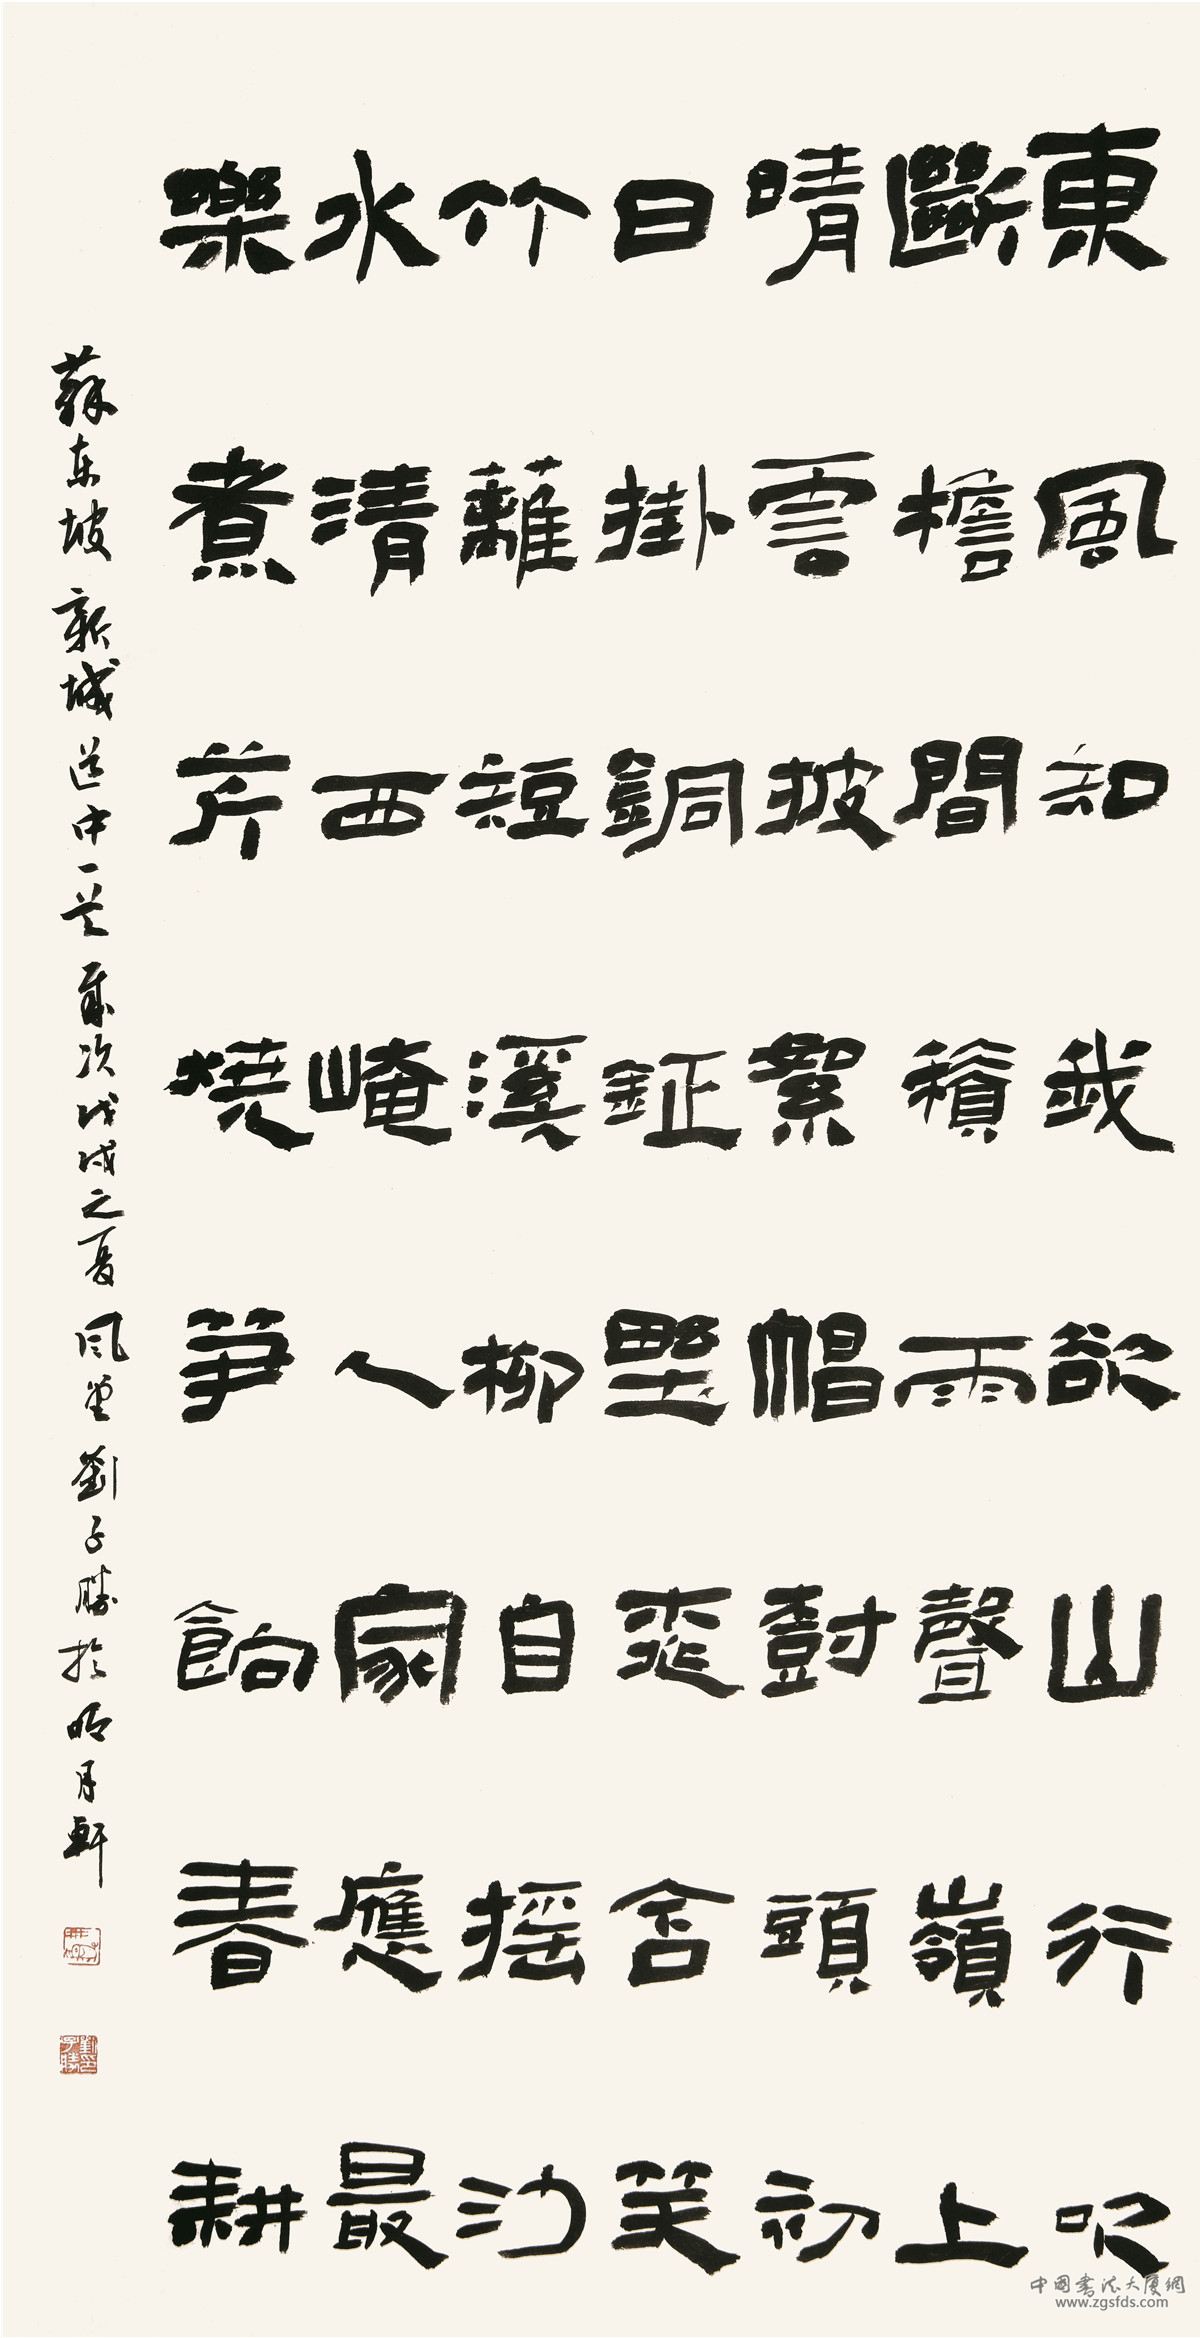 東風知我欲山行吹
斷檐間積雨聲嶺上
晴雲披絮帽尌頭初
日掛銅鉦野桃含笑
竹蘺短溪柳自搖沙
水清西崦人家應最
樂煮芹燒笋餉春耕
蘇東坡新城道中一首歲次戊戌之夏風堂劉子勝於明月軒
劉子勝印
中國書法大廈網
www.zgsfds.com